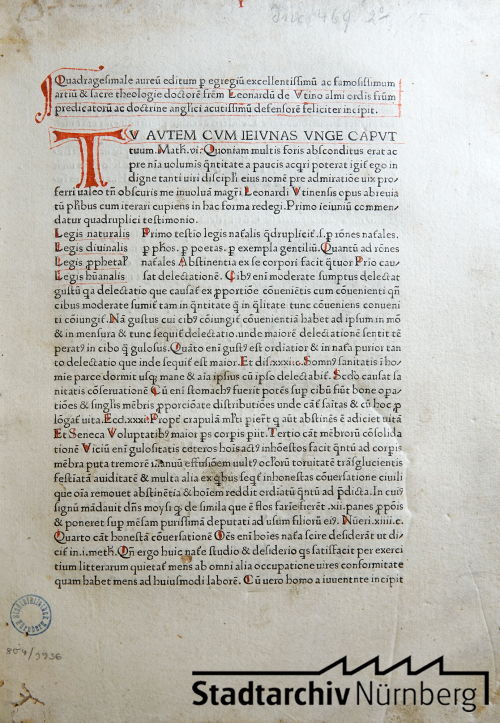 Inc 469 2°
Quadragesimale aureū editum p egregiū excellentissimū ac famosissimum
artiū & sacre theologie doctorē frēm Leonardū de Vtino almi ordīs frūm
predicatorū ac doctrine anglici acutissimū defensorē feliciter incipit.
TV AVTEM CVM IEIVNAS VNGE CAPVT
tuum. Math. vi: Quoniam multis foris absconditus erat ac
pre nīa uolumis q̄ntitate a paucis acqri poterat igif ego in
digne tanti uiri discipli eius nomē pre admiratiōe uix pro-
ferri ualeo tn̄ obscuris me inuolua magr̄i Leonardi Vtinensis opus abreuia
tū p̄sibus cum iterari cupiens in hac forma redegi. Primo ieiuniū commen-
datur quadruplici testimonio.
Legis naturalis Primo testio legis nafalis q̄drupliciť. s. p rōnes nafales.
Legis diuinalis p phos. p poetas. p exempla gentiliū. Quantū ad rōnes
Legis p̱phetal nafales Abstinentia ex se corpori facit q̄tuor Prio cau-
Legis hūanalis sat delectationē. Cibꝰ enī moderate sumptus delectat
gustū qa delectatio que causaf ex p̱portiōe cōueniētis cum cōuenienti qn̄
cibus moderate sumif tam in q̄ntitate q̄ in q̄litate tunc cōueniens conueni
ti cōiungif. Nā gustus cui cibꝰ cōiungif cōuenientiā habet ad ipsum in mō
& in mensura & tunc sequif delectatio. unde maiorē delectationē sentit tē
peratꝰ in cibo q̄ gulosus. Quāto enī gustꝰ est ordiatior & in nafa purior tan
to delectatio que inde sequif est maior. Et dif. xxxii. c. Somnꝰ sanitatis ī ho-
mie parce dormit usq̱ mane & aīa ipsius cū ipso delectabif. Scdo causat sa
nitatis cōseruationē Cū enī stomachꝰ fuerit potēs sup cibū fiūt bone opa-
tiōes & singlīs mēbris p̱porciōate distributiōes unde cāt̄ saītas & cū hoc p̱
lōgaf uita. Eccl. xxxi. Propt̄ crapulā mlt̄i pieřt q aūt abstinēs ē adiciet uitā
Et Seneca Voluptatibꝰ maior ps corpis piit. Tertio cāt mēbrorū cōsolida
tionē Viciū enī gulositatis ceteros hoīs actꝰ inhōestos facit q̄ntū ad corpis
mēbra puta tremorē manuū effusiōem uult̄ oclorū toruitatē trāsglucientis
festiātā auiditatē & multa alia ex qbus seqf inhonestas cōuersatione ciuili
que oīa remouet abstinētia & hoīem reddit ordiatū q̄ntū ad p̄dicta. In cuiꝰ
signū mādauit dn̄s moysi q̱ de simila que ē flos farīe fierēt .xii. panes p̱pōis
& poneret sup mēsam purissimā deputati ad usum filiorū eiꝰ. Nūeri. xiiii. c.
Quarto cāt honestā cōuersationē Oēs enī hoīes nafa scire desiderāt ut di-
cif in .i. meth. Qn̄ ergo huic nafe studio & desiderio qs satisfacit per exerci
tium litterarum quietaf mens ab omni alia occupatione uires conformitate
quam habet mens ad huiusmodi laborē. Cū uero homo a iuuentute incipit
Stadtarchiv Nürnberg